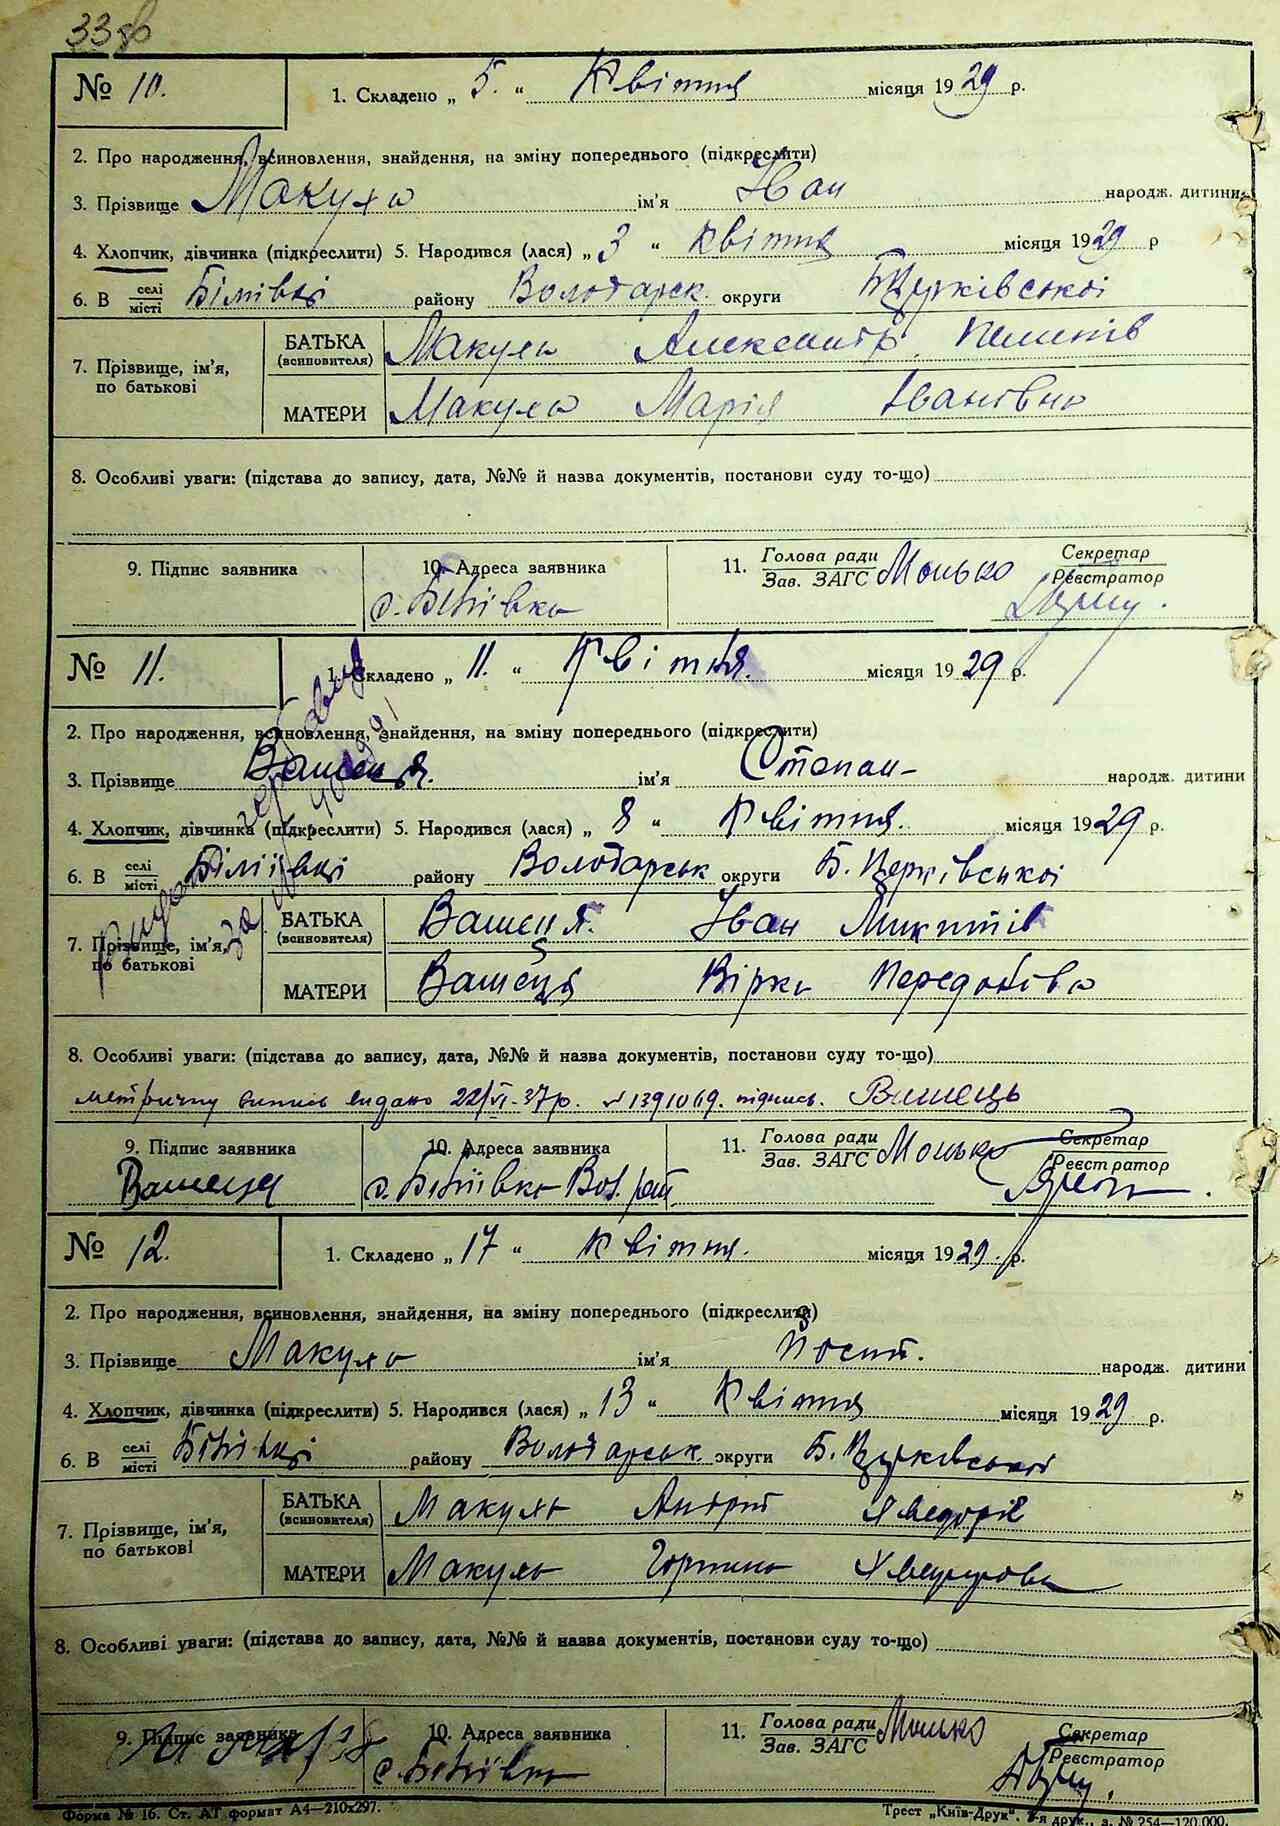 33 зв
№ 10. 1. Складено „ 5. “ Квітня місяця 1929 р.
2. Про народження, всиновлення, знайдення, на зміну попереднього (підкреслити)
3. Прізвище Макуха ім'я Іван народж. дитини
4. Хлопчик, дівчинка (підкреслити) 5. Народився (лася) „ 3 “ квітня місяця 1929 р
6. В селі/місті району Володарск. округи Бцерківської
7. Прізвище, ім'я, по батькові БАТЬКА (всиновителя) Макуха Александр
МАТЕРИ Макуха Марія Іванівна
8. Особливі уваги: (підстава до запису, дата, №№ й назва документів, постанови суду то-що)
9. Підпис заявника 10. Адреса заявника 11. Голова ради/Зав. ЗАГС Монько Секретар/Реєстратор
с.
№ 11. 1. Складено „ 11. “ Квітня. місяця 1929 р.
2. Про народження, всиновлення, знайдення, на зміну попереднього (підкреслити)
3. Прізвище Вашеця. ім'я Степан- народж. дитини
4. Хлопчик, дівчинка (підкреслити) 5. Народився (лася) „ 8 “ Квітня. місяця 1929 р.
6. В селі/місті Біліївці району Володарськ округи Б. Церківської
7. Прізвище, ім'я, по батькові БАТЬКА (всиновителя) Вашеця. Іван Микитів
МАТЕРИ Вашеця Вірка
8. Особливі уваги: (підстава до запису, дата, №№ й назва документів, постанови суду то-що)
метричну випись видано 22/VI-37р. підпись. Вашець
9. Підпис заявника 10. Адреса заявника 11. Голова ради/Зав. ЗАГС Монько Секретар/Реєстратор
Вашеця с. Вол. рай
№ 12. 1. Складено „ 17 “ квітня. місяця 1929. р.
2. Про народження, всиновлення, знайдення, на зміну попереднього (підкреслити)
3. Прізвище Макуха ім'я Йосип. народж. дитини
4. Хлопчик, дівчинка (підкреслити) 5. Народився (лася) „ 13 “ Квітня місяця 1929 р.
6. В селі/місті району Володарськ. округи Б. Церківської
7. Прізвище, ім'я, по батькові БАТЬКА (всиновителя) Макуха Андрій
МАТЕРИ Макуха Горпина
8. Особливі уваги: (підстава до запису, дата, №№ й назва документів, постанови суду то-що)
9. Підпис заявника 10. Адреса заявника 11. Голова ради/Зав. ЗАГС Монько Секретар/Реєстратор
с.
Форма № 16. Ст. АТ формат А4—210х297. Трест „Київ-Друк“. друк., з. № 254—120.000.